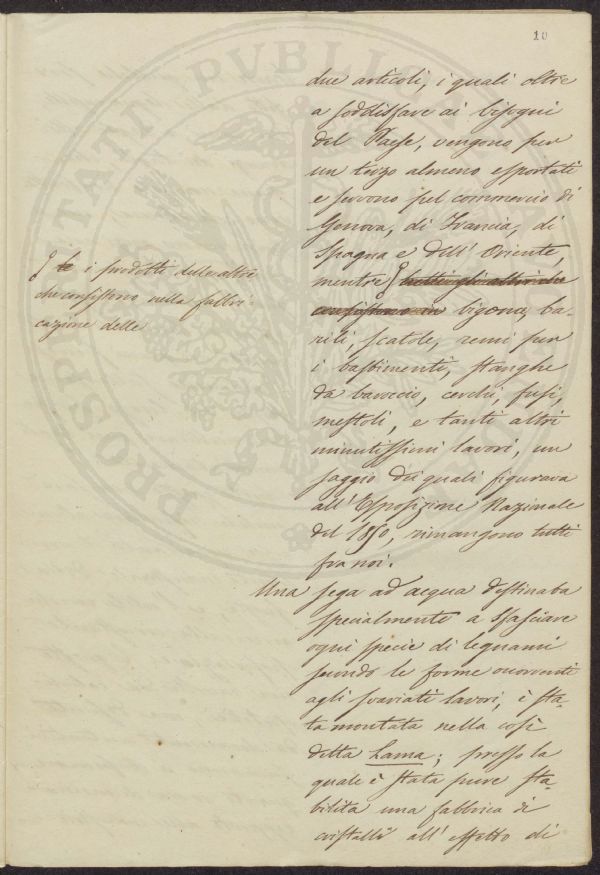 10
due articoli, i quali oltre
a soddisfare ai bisogni
del Paese, vengono per
un terzo almeno esportati
e servono pel commercio di
Genova, di Francia, di
Spagna e dell' Oriente,
mentre tutti gli altri che
consistono in bigonce, ba-
rili, scatole, remi per
i bastimenti, stanghe
da baroccio, cerchi, fusi,
mestoli, e tanti altri
minutissimi lavori, un
saggio dei quali figurava
all' Esposizione Nazionale
del 1850, rimangono tutti
fra noi.
Una sega ad acqua destinata
specialmente a sfasciare
ogni specie di legnami
secondo le forme occorrenti
agli svariati lavori, è sta-
ta montata nella così
detta Lama; presso la
quale è stata pure sta-
bilita una fabbrica di
cristalli all' effetto di
le i prodotti delle altre
che consistono nella fabbri-
cazione delle
PROSPERITATI PUBLICAE